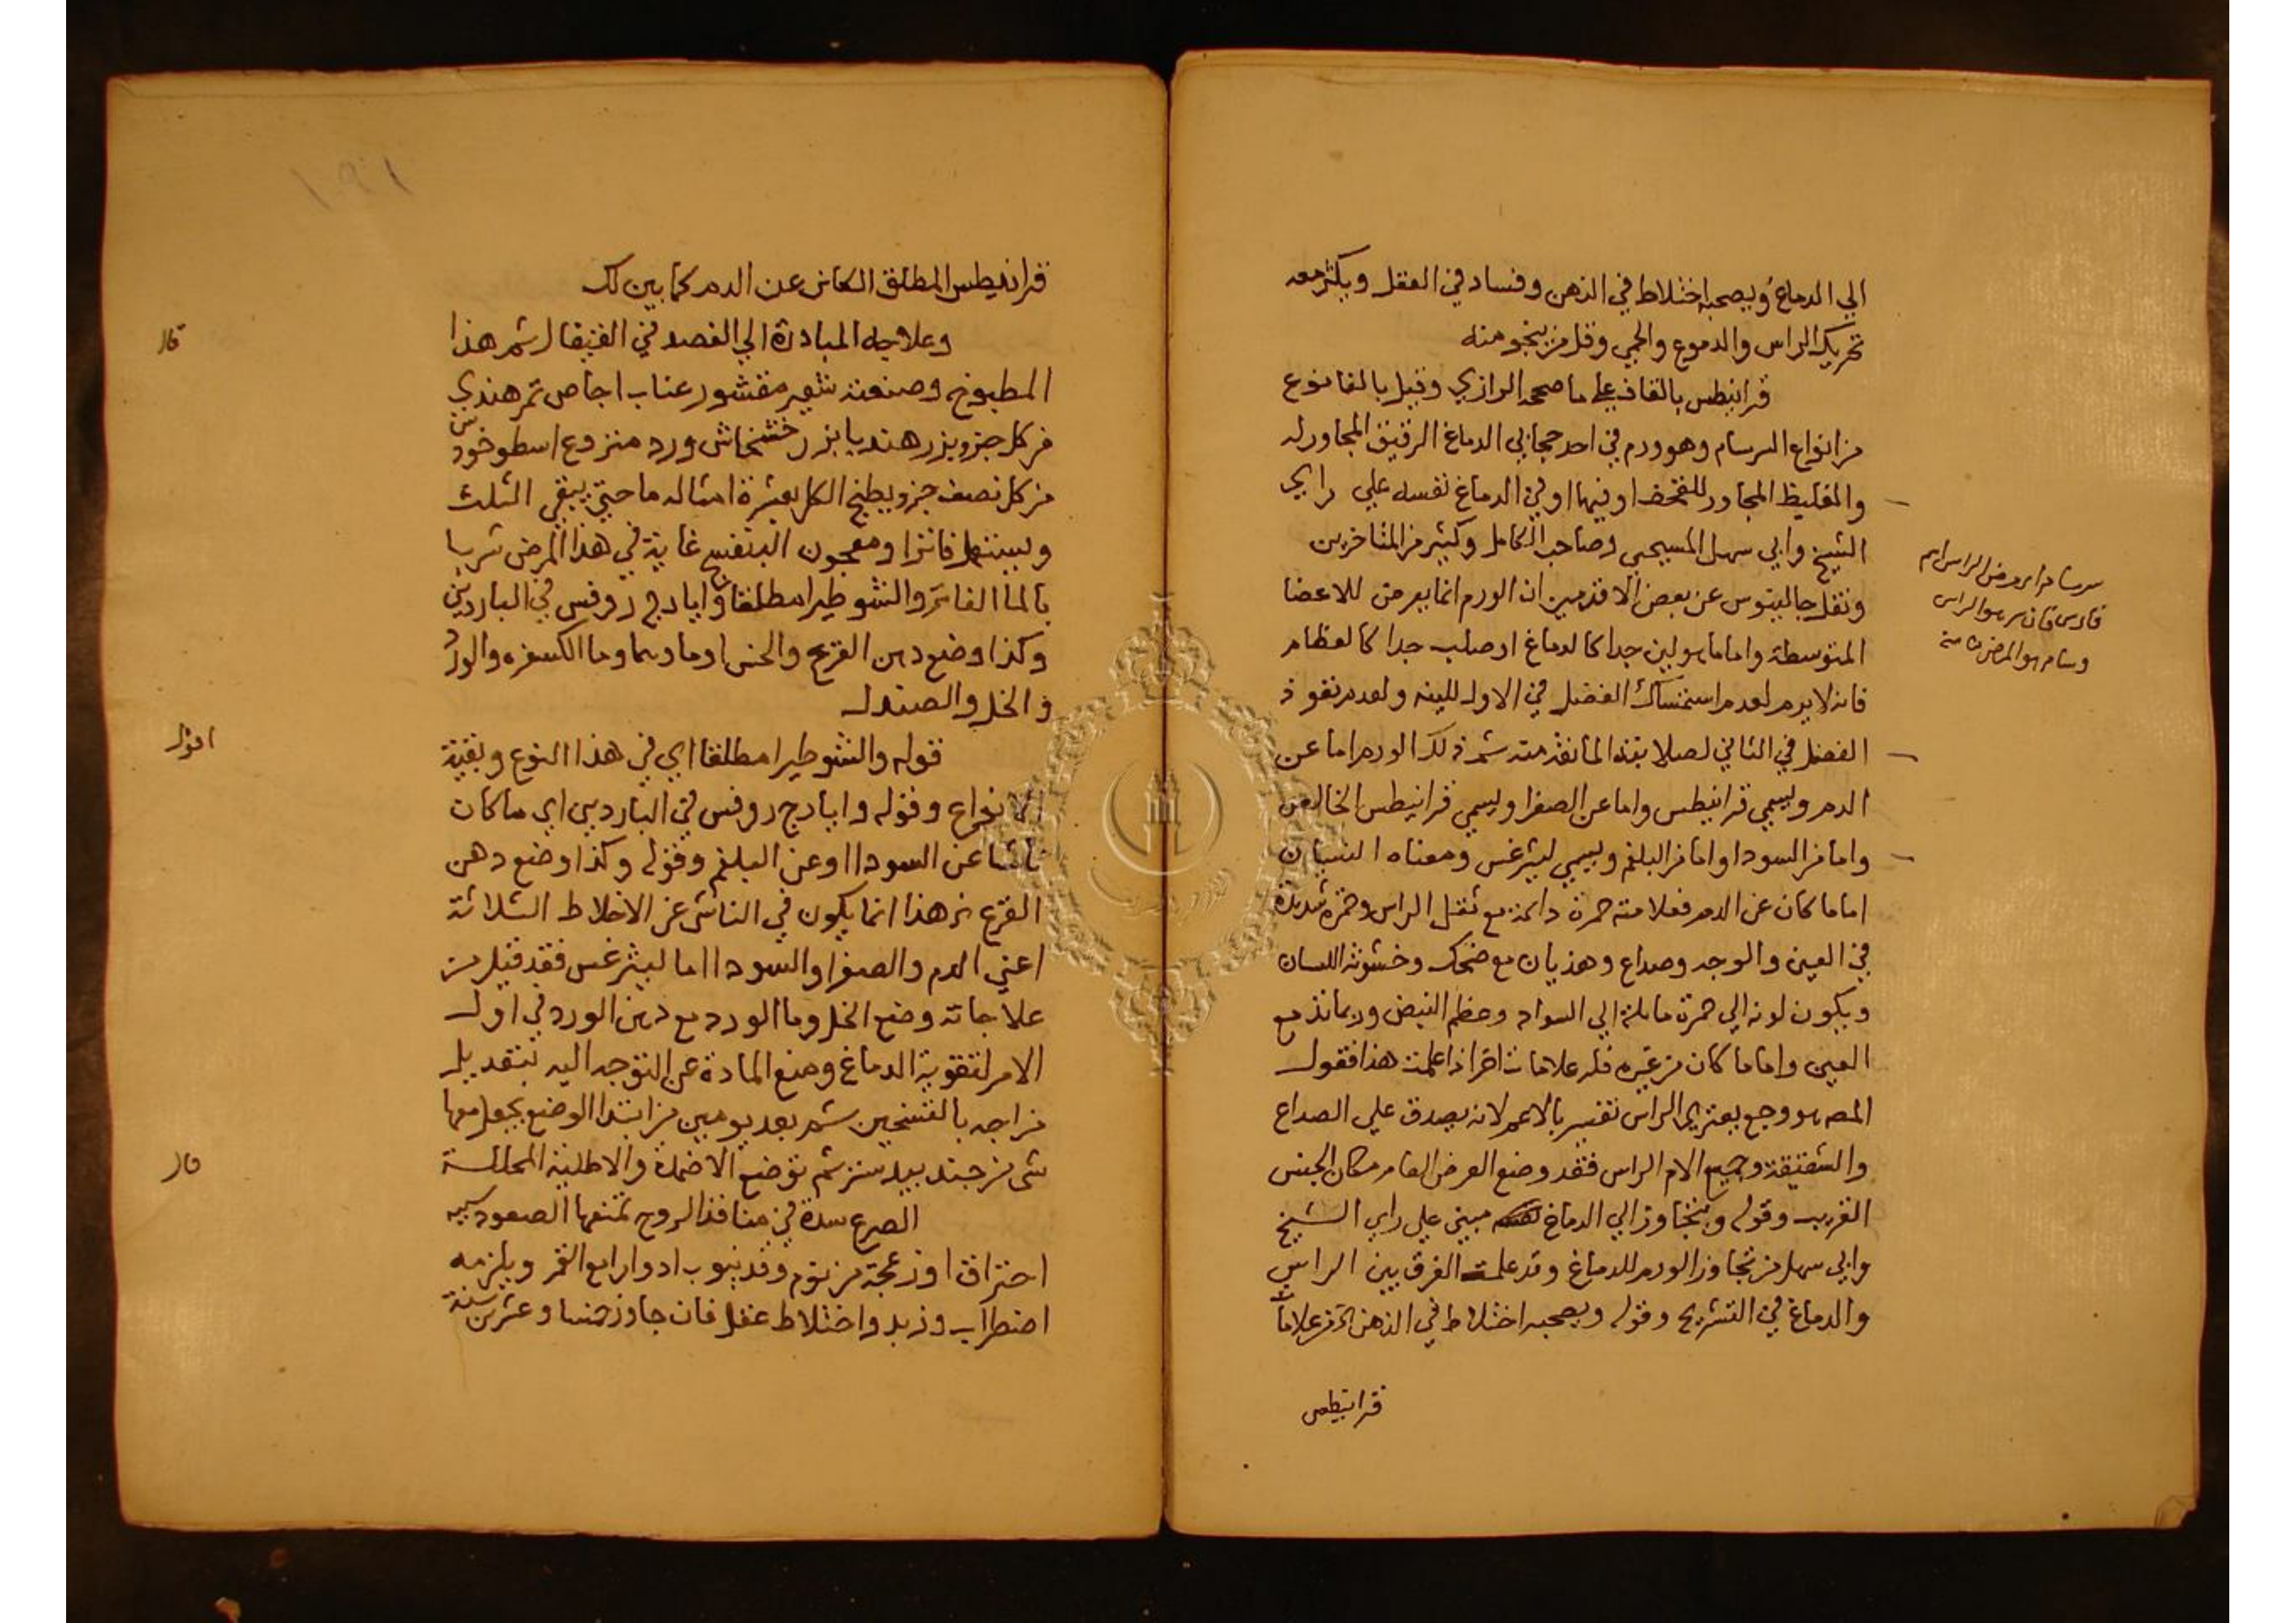 الي الدماغ ويصحبه اختلاط في الذهن وفساد في العقل ويكثر معه
تحريك الراس والدموع والحمي وقل من ينجو منه
قرانيطس بالقاف علي ما صححه الرازي وقيل بالفا نوع
من انواع السرسام وهو ورم في احد حجابي الدماغ الرقيق المجاور له
والغليظ المجاور للقحف او فيهما او في الدماغ نفسه علي راي
الشيخ وابي سهل المسيحي وصاحب الكامل وكثير من المتاخرين
ونقل جالينوس عن بعض الاقدمين ان الورم انما يعرض للاعضا
المتوسطة واما ما هو لين جدا كالدماغ او صلب جدا كالعظام
فانه لا يرم لعدم استمساك الفضل في الاول للينه ولعدم نفوذ
الفضل في الثاني لصلابته لما نفذ منه ثم ذلك الورم اما عن
الدم ويسمي قرانيطس واما عن الصفرا ويسمي قرانيطس الخالص
واما من السودا واما من البلغم ويسمي ليثرغس ومعناه النسيان
اما ما كان عن الدم فعلامته حمرة دائمة مع ثقل الراس وحمرة شديدة
في العين والوجه وصداع وهذيان مع ضحك وخشونة اللسان
ويكون لونه الي حمرة مايلة الي السواد وعظم النبض وربما تدمع
العين واما ما كان من غيره فله علامات اخر اذا علمت هذا فقول
المص هو وجع يعتري الراس تفسير بالاعم لانه يصدق علي الصداع
والشقيقة وجميع الام الراس فقد وضع العرض العام مكان الجنس
القريب وقوله ويتجاوز الي الدماغ مبني علي راي الشيخ
وابي سهل من تجاوز الورم للدماغ وقد علمت الفرق بين الراس
والدماغ في التشريح وقوله ويصحبه اختلاط في الذهن الخ من علامات
قرانيطس
سرسام اي مرض الراس اسم
فارسي فان سر هو الراس
وسام هو المرض منه
قرانيطس المطلق الكائن عن الدم كما بين لك
قال
وعلاجه المبادرة الي الفصد في القيفال ثم هذا
المطبوخ وصنعته شعير مقشور عناب اجاص تمر هندي
من كل جزو بزر هندبا بزر خشخاش ورد منزوع اسطوخودس
من كل نصف جزو يطبخ الكل بعشرة امثاله ما حتي يبقي الثلث
ويستعمل فاترا ومعجون البنفسج غاية في هذا المرض شربا
بالما الفاتر والنشوطيرا مطلقا وايارج روفس في الباردين
وكذا وضع دهن القرع والخس او ماوهما وما الكسفره والورد
والخل والصندل
اقول
قوله والنشوطيرا مطلقا اي في هذا النوع وبقية
الانواع وقوله وايارج روفس في الباردين اي ما كان
ناشا عن السودا او عن البلغم وقوله وكذا وضع دهن
القرع الخ هذا انما يكون في الناشي عن الاخلاط الثلاثة
اعني الدم والصفرا والسودا اما ليثرغس فقد قيل من
علاجاته وضع الخل وما الورد مع دهن الورد في اول
الامر لتقوية الدماغ ومنع المادة عن التوجه اليه بتعديل
مزاجه بالتسخين ثم بعد يومين من ابتدا الوضع يجعل معها
شي من جندبيدستر ثم توضع الاضمدة والاطلية المحللة
قال
الصرع سدة في منافذ الروح تمنعها الصعود سببه
احتراق او زعجة من نوم وقد ينوب ادوارا مع القمر ويلزمه
اضطراب وزبد واختلاط عقل فان جاوز خمسا وعشرين سنة